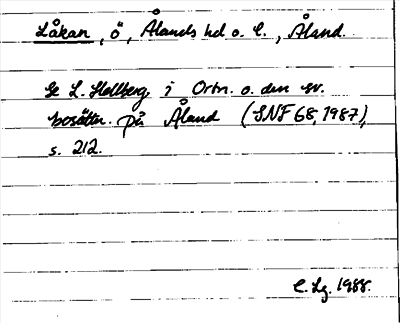 Låkan, ö, Ålands hd o. l., Åland.
Se L. Hellberg, i Ortn. o. den sv.
bosättn. på Åland (SNF 68, 1987),
s. 212.
C. Lg. 1988.